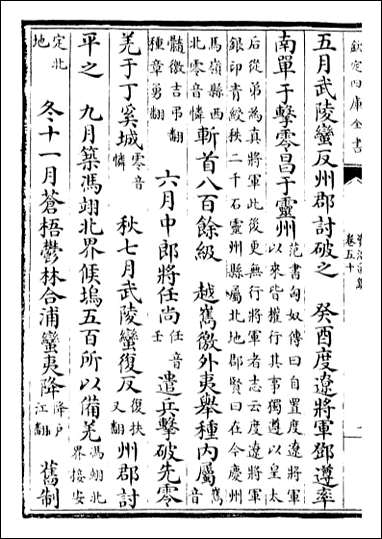 欽定四庫全書
資治通鑑
卷五十
五月武陵蠻反州郡討破之　癸酉度遼將軍鄧遵率
南單于擊零昌于靈州 范書匈奴傳曰自置度遼將軍 以來皆權行其事獨遵以皇太
后從弟為真將軍此後更無行將軍者志云度遼將軍 銀印青綬秩二千石靈州縣屬北地郡賢曰在今慶州
馬嶺縣西 北零音憐 斬首八百餘級　越嶲徼外夷舉種内屬 嶲音
髓徼吉弔翻 種章勇翻 六月中郎將任尚 任音 壬 遣兵擊破先零
羌于丁奚城 零音 憐 秋七月武陵蠻復反 復扶 又翻 州郡討
平之　九月築馮翊北界候塢五百所以備羌 馮翊北 界接安
定北 地 冬十一月蒼梧鬱林合浦蠻夷降 降戶 江翻 舊制